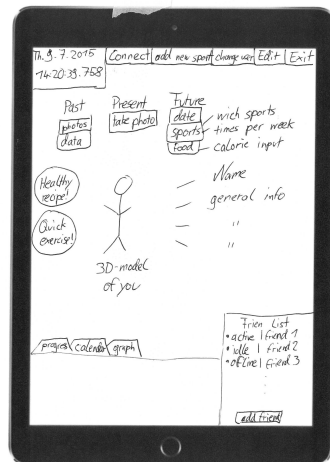 Th. 9. 7. 2015
14:20:39.768
Connect
add new sport
change user
Edit
Exit
Past
photos
data
Present
take photo
Future
date
sports
food
wich sports
times per week
calorie input
Healthy
recipe!
Quick
exercise!
3D-model
of you
Name
general info
"
"
progres
calendar
graph
Frien List
• active | friend 1
• idle | friend 2
• offline | friend 3
add friend